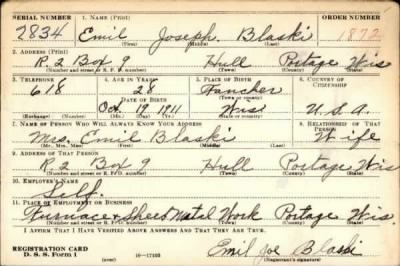 SERIAL NUMBER 1. NAME (Print) ORDER NUMBER
2834 Emil Joseph Blaski 1872
(First) (Middle) (Last)
2. ADDRESS (Print)
R. 2 Box 9 Hull Portage Wis
(Number and street or R. F. D. number) (Town) (County) (State)
3. TELEPHONE 4. AGE IN YEARS 5. PLACE OF BIRTH 6. COUNTRY OF CITIZENSHIP
618 28 Fancher
DATE OF BIRTH (Town or county)
Oct. 19 1911 Wis. U.S.A.
(Exchange) (Number) (Mo.) (Day) (Yr.) (State or country)
7. NAME OF PERSON WHO WILL ALWAYS KNOW YOUR ADDRESS 8. RELATIONSHIP OF THAT PERSON
Mrs. Emil Blaski Wife
(Mr., Mrs., Miss) (First) (Middle) (Last)
9. ADDRESS OF THAT PERSON
R. 2 Box 9 Hull Portage Wis
(Number and street or R. F. D. number) (Town) (County) (State)
10. EMPLOYER'S NAME
Self.
11. PLACE OF EMPLOYMENT OR BUSINESS
Furnace & Sheet Metal Work Portage Wis
(Number and street or R. F. D. number) (Town) (County) (State)
I AFFIRM THAT I HAVE VERIFIED ABOVE ANSWERS AND THAT THEY ARE TRUE.
REGISTRATION CARD
D. S. S. Form 1 (over) 16—17105 Emil Joe Blaski
(Registrant's signature)